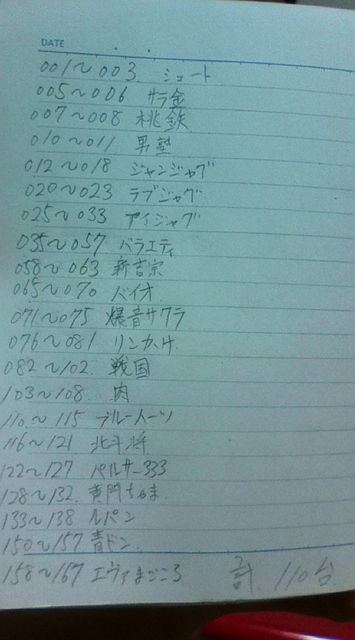 DATE
001〜003. シュート
005〜006 サラ金
007〜008 桃鉄
010〜011 男塾
012〜018 ジャンジャグ
020〜023 ラブジャグ
025〜033 アイジャグ
035〜057 バラエティ
058〜063 新吉宗
065〜070 バイオ
071〜075 爆音サクラ
076〜081 リンかけ
082〜102. 戦国
103〜108. 肉
110.〜115 ブルーノーツ
116〜121 北斗将
122〜127 パルサー333
128〜132. 黄門ちゃま
133〜138 ルパン
150〜157 青ドン
158〜167 エヴァまごころ 計. 110台